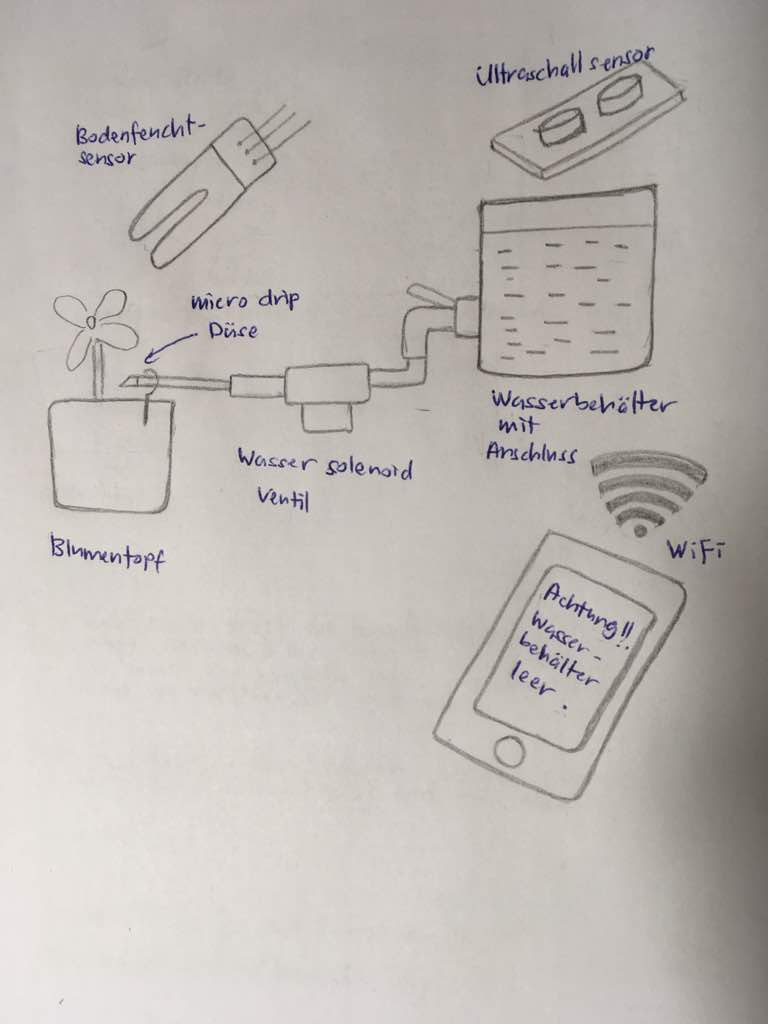 Ultraschallsensor
Bodenfeucht-
sensor
micro drip
Düse
Wasserbehälter
mit
Anschluss
Wasser solenoid
Ventil
Blumentopf
WiFi
Achtung!!
Wasser-
behälter
leer.